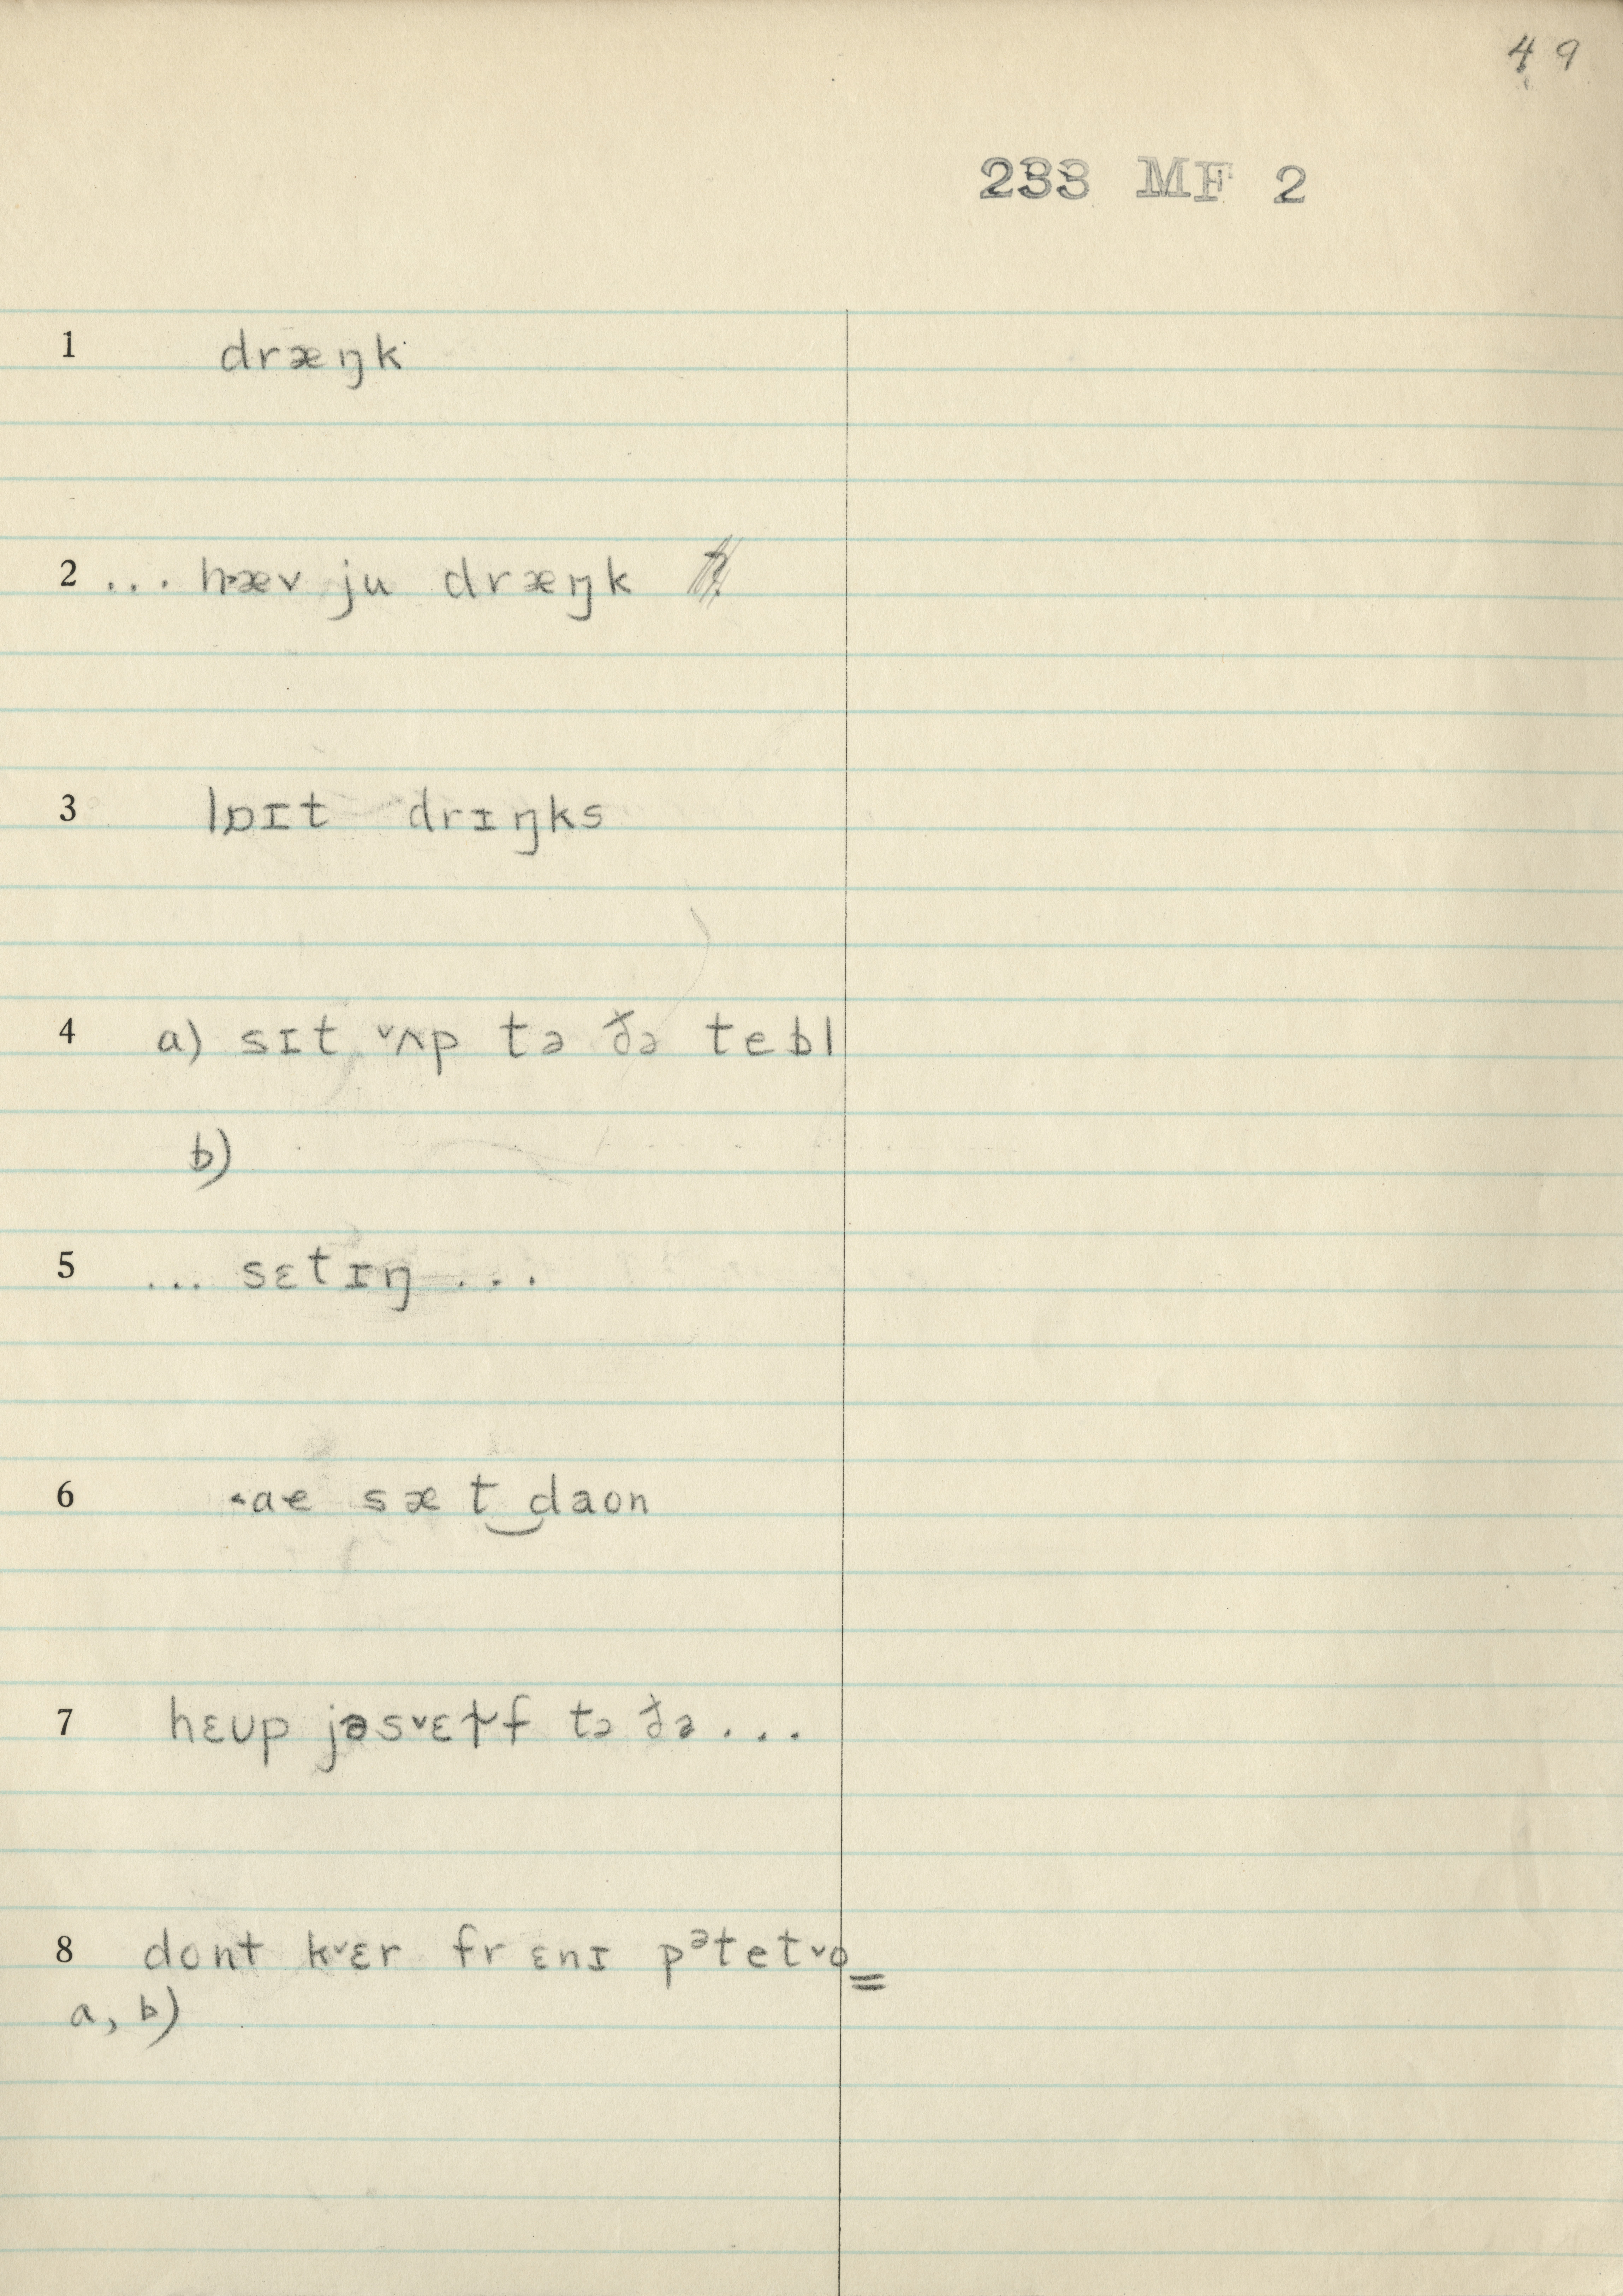 49
233 MF 2
1 dræŋk
2 ... hæv ju dræŋk
3 lɒɪt drɪŋks
4 a) sɪt ˅ʌp tə ðə tebl
b)
5 ... sɛtɪŋ ...
6 ˂ae sæt‿daon
7 hɛʊp jəs˅ɛɫf tə ðə ...
8 dont k˅ɛr fr ɛnɪ pᵊtet˅o̳
a, b)